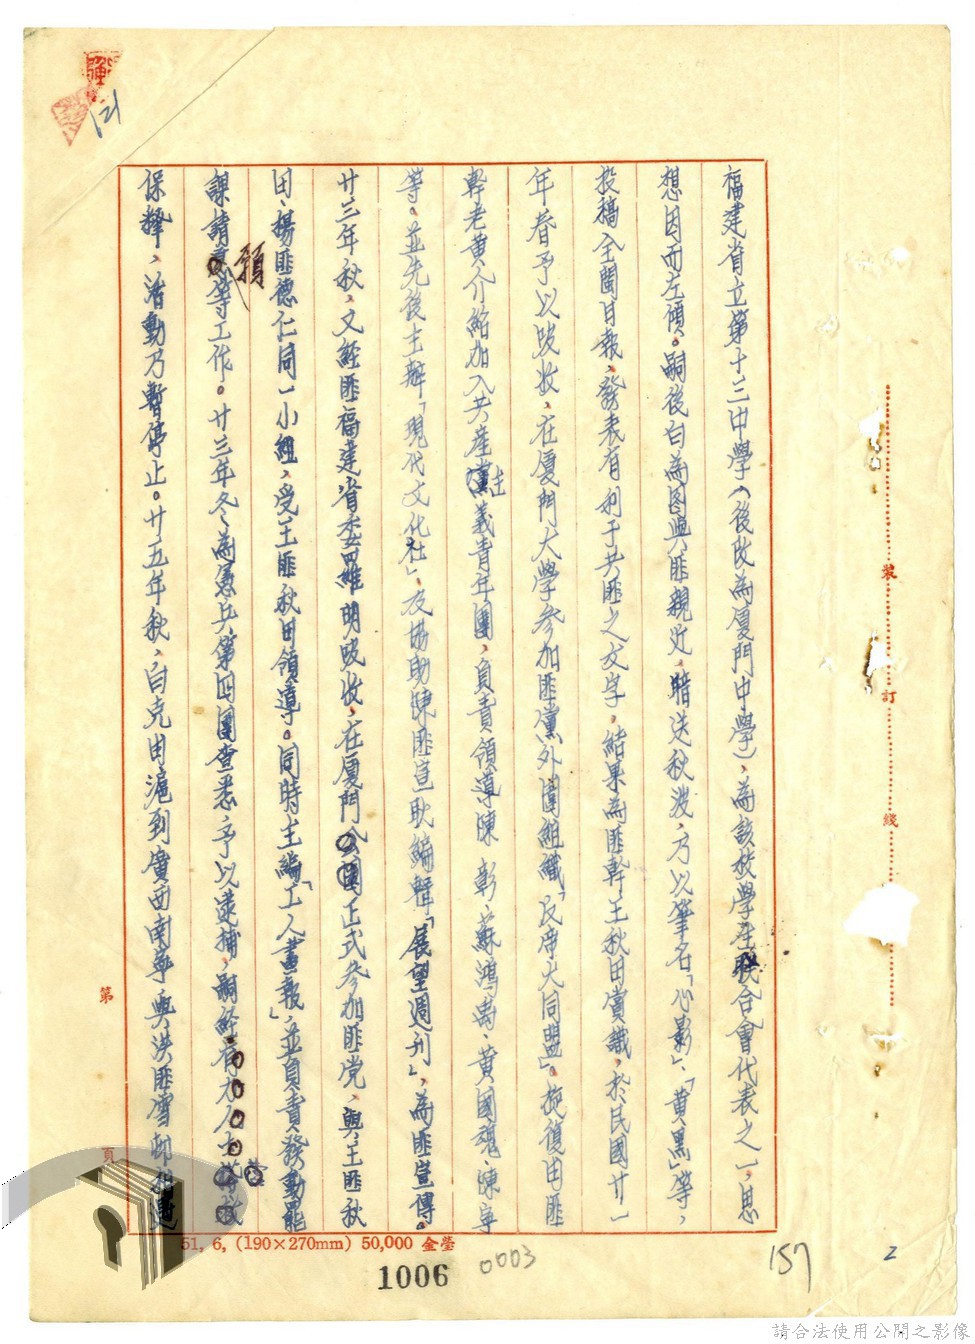 福建省立第十三中學(後改為厦門中學)、為該校學生聯合會代表之一,思
想因而左傾。嗣後白為圖與匪親近、暗送秋波,乃以筆名「心影」、「黃黑」等,
投稿全閩日報、發表有利于共匪之文字。結果為匪幹王秋田賞識,於民國廿一
年春予以吸收、在厦門大學參加匪黨外圍組織「反帝大同盟」。旋復由匪
幹老黃介紹加入共產主義青年團、負責領導陳 彰、蘇鴻禹、黃國魂、陳寧
等。並先後主辦「現代文化社」、及協助陳匪宣耿編輯「展望週刊」,為匪宣傳。
廿三年秋,又經匪福建省委羅明吸收,在厦門公園正式參加匪党,與王匪秋
田、楊匪德仁同一小組,受王匪秋田領導。同時主編「工人畫報」並負責發動罷
課請願等工作。廿三年冬為憲兵第四團查悉,予以逮捕,嗣經
保釋、活動乃暫停止。廿五年秋,白克由滬到廣西南寧與洪匪雪邨相遇
裝
訂
線
第
頁
51, 6, (190×270mm) 50,000 金瑩
1006
0003
157
2
121
請合法使用公開之影像